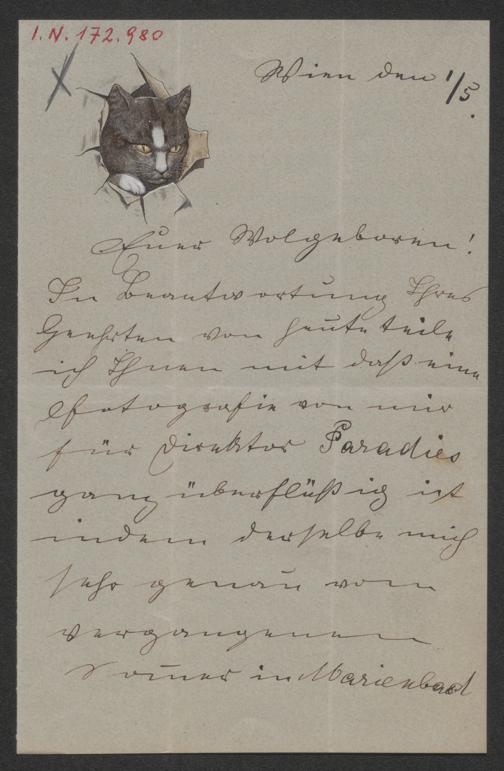 I.N. 172.980
Wien den 1/5.
Euer Wolgeboren!
In Beantwortung Ihres
Geehrten von heute teile
ich Ihnen mit daß eine
Fotografie von mir
für Direktor Paradies
ganz überflüßig ist
indem derselbe mich
sehr genau vom
vergangenen
Somer in Marienbad